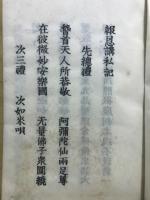 報恩講私記
先總禮
稽首天人所恭敬　阿彌陀仙兩足尊
在彼微妙安樂國　無量佛子衆圍繞
次三禮　次如來唄